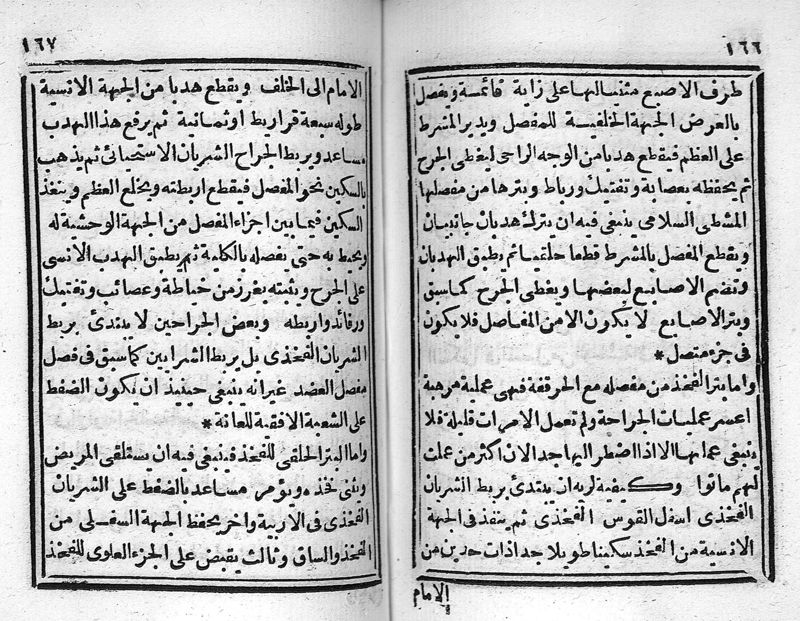 ١٦٦
طرف الاصبع مثنيا لها على زاية قائمة ويفصل
بالعرض الجهة الخلفية للمفصل ويدير المشرط
على العظم فيقطع هدبا من الوجه الراحى ليغطى الجرح
ثم يحفظه بعصابة وتفتيك ورباط وبترها من مفصلها
المشطى السلامى ينبغى فيه ان يترك هدبان جانبيان
ويقطع المفصل بالمشرط قطعا حلقيا ثم يطبق الهدبان
وتضم الاصابع لبعضها ويغطى الجرح كما سبق
وبتر الاصابع لا يكون الا من المفاصل فلا يكون
فى جزء متصل *
واما بتر الفخذ من مفصله مع الحرقفة فهى عملية مرهبة
اعسر عمليات الجراحة ولم تعمل الا مرات قليلة فلا
ينبغى عملها الا اذا اضطر اليها جدا لان اكثر من عملت
لهم ماتوا وكيفية لريه ان يبتدئ بربط الشريان
الفخذى اسفل القوس الفخذى ثم ينفذ فى الجهة
الانسية من الفخذ سكينا طويلا جدا ذات حدين من
الامام
١٦٧
الامام الى الخلف ويقطع هدبا من الجهة الانسية
طوله سبعة قراريط او ثمانية ثم يرفع هذا الهدب
مساعد ويربط الجراح الشريان الاستحيائى ثم يذهب
بالسكين نحو المفصل فيقطع اربطته ويخلع العظم وينفذ
السكين فيما بين اجزاء المفصل من الجهة الوحشية له
ويحيط به حتى يفصله بالكلية ثم يطبق الهدب الانسى
على الجرح ويثبته بغرز من خياطة وعصائب وتفتيك
ورفائد واربطه وبعض الجراحين لا يبتدئ بربط
الشريان الفخذى بل يربط الشرايين كما سبق فى فصل
مفصل العضد غير انه ينبغى حينئذ ان يكون الضغط
على الشعبة الافقية للعانة *
واما البتر الحلقى للفخذ فينبغى فيه ان يستلقى المريض
ويثنى فخذه ويؤمر مساعد بالضغط على الشريان
الفخذى فى الاربية واخر يحفظ الجهة السفلى من
الفخذ والساق وثالث يقبض على الجزء العلوى للفخذ